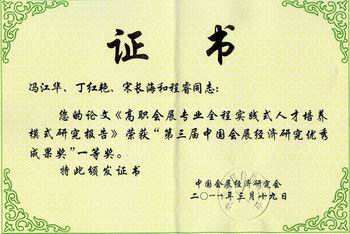 证书
冯江华、丁红艳、宋长海和程睿同志：
您的论文《高职会展专业全程实践式人才培养
模式研究报告》荣获“第三届中国会展经济研究优秀
成果奖”一等奖。
特此颁发证书
中国会展经济研究会
二〇一一年三月十九日